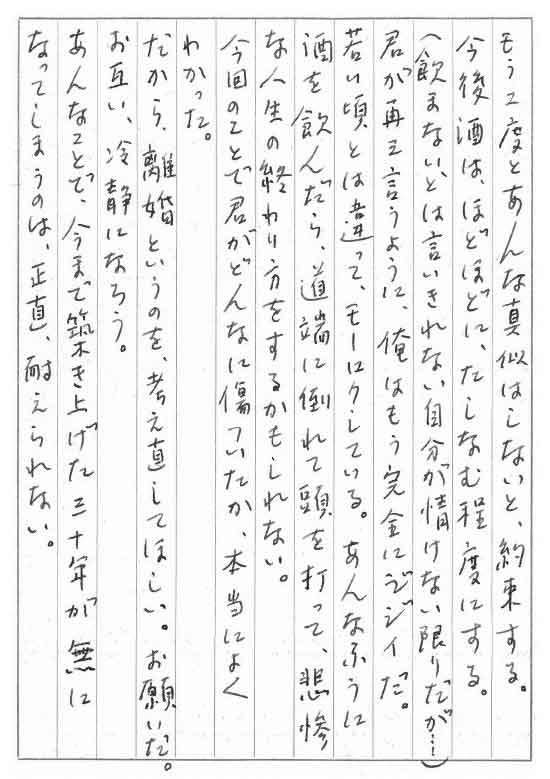 もう二度とあんな真似はしないと、約束する。
今後酒は、ほどほどに、たしなむ程度にする。
（飲まない、とは言いきれない自分が情けない限りだが…）
君が再三言うように、俺はもう完全にジジイだ。
若い頃とは違って、モーロクしている。あんなふうに
酒を飲んだら、道端に倒れて頭を打って、悲惨
な人生の終わり方をするかもしれない。
今回のことで君がどんなに傷ついたか、本当によく
わかった。
だから、離婚というのを、考え直してほしい。お願いだ。
お互い、冷静になろう。
あんなことで、今まで築き上げた三十年が無に
なってしまうのは、正直、耐えられない。